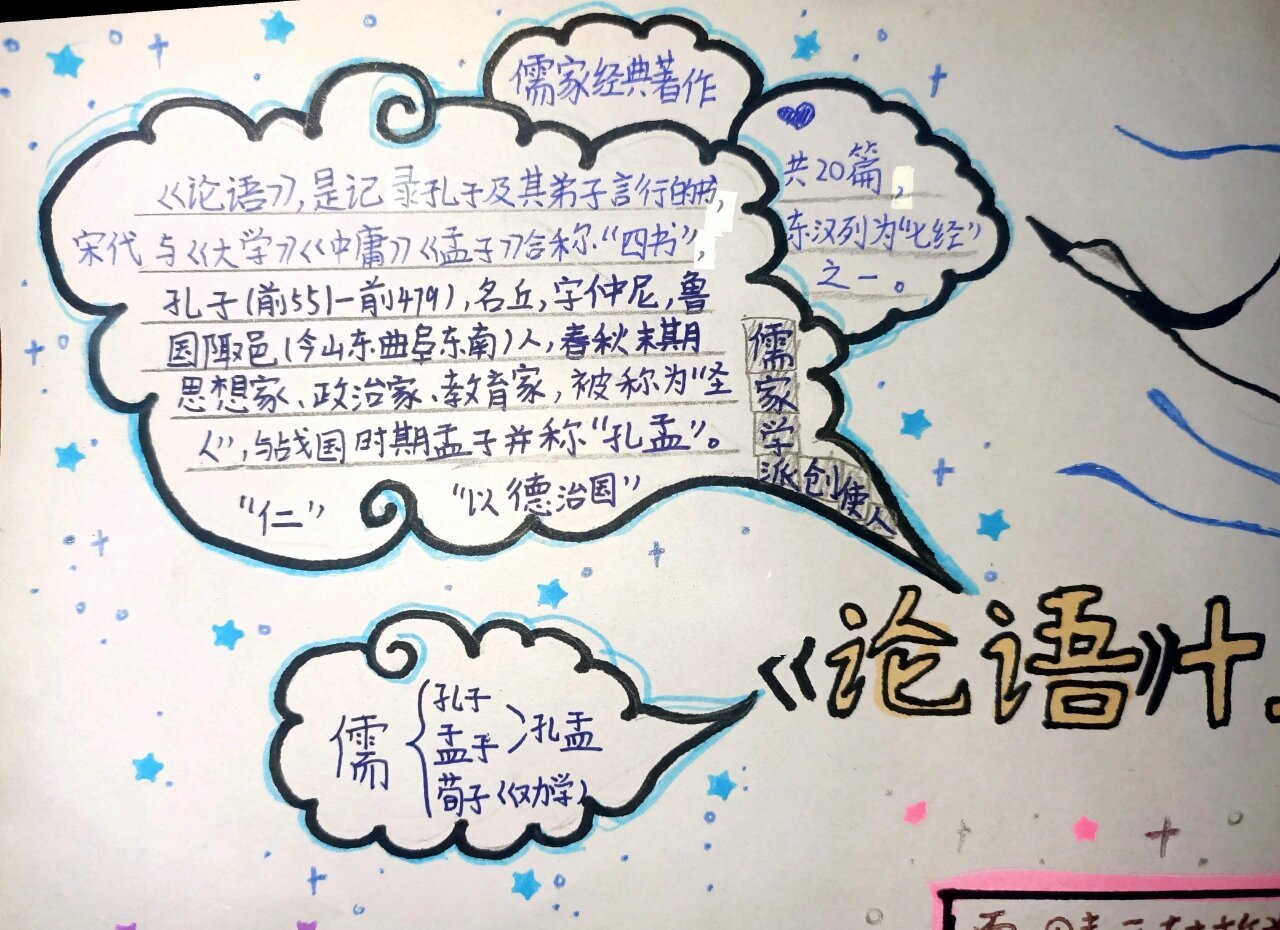 儒家经典著作
《论语》,是记录孔子及其弟子言行的书,
宋代与《大学》《中庸》《孟子》合称“四书”,
孔子(前551-前479),名丘,字仲尼,鲁
国陬邑(今山东曲阜东南)人,春秋末期
思想家、政治家、教育家,被称为“圣
人”,与战国时期孟子并称“孔孟”。
“仁” “以德治国”
儒家学派创使人
共20篇,
东汉列为“七经”
之一。
《论语》十
儒
孔子
孟子
孔孟
荀子《劝学》